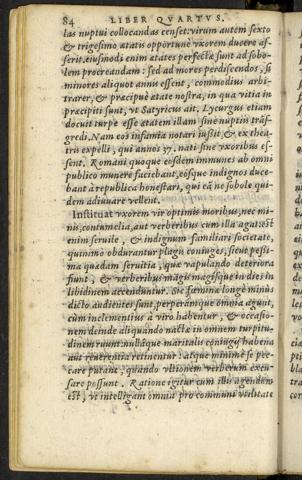 84 LIBER QVARTVS.
las nuptui collocandas censet: virum autem sexto
& trigesimo ætatis opportunè vxorem ducere as-
serit. eiusmodi enim ætates perfectæ sunt ad sobo-
lem procreandam: sed ad mores perdiscendos, si
minores aliquot annis essent, commodius arbi-
trarer, & præcipuè ætate nostra, in qua vitia in
præcipiti sunt, vt Satyricus ait. Lycurgus etiam
docuit turpe esse ætatem illam sine nuptiis trãs-
gredi. Nam eos infamia notari iussit, & ex thea-
tris expelli, qui annos 37. nati sine vxoribus es-
sent. Romani quoque eosdem immunes ab omni
publico munere faciebant, eosque indignos duce-
bant à republica honestari, qui eã ne sobole qui-
dem adiuuare vellent.
Instituat vxorem vir optimis moribus, nec mi-
nis, contumelia, aut verberibus cum illa agat: est
enim seruile, & indignum familiari societate,
quinimo obdurantur plagis coniuges, sicut pessi-
ma quædam seruitia, quæ vapulando deteriora
fiunt, & verberibus magis magisque in dies in
libidinem accenduntur. Sic fœminæ longè minùs
dicto audientes sunt, perperámque omnia agunt,
cùm inclementius à viro habentur, & occasio-
nem deinde aliquando nactæ in omnem turpitu-
dinem ruunt: nullâque maritalis coniugij habena
aut reuerentia retinentur: atque minimè se pec-
care putant, quando vltionem verberum excu-
sare possunt. Ratione igitur cum illis agendum
est, vt intelligant omnia pro communi vtilitate